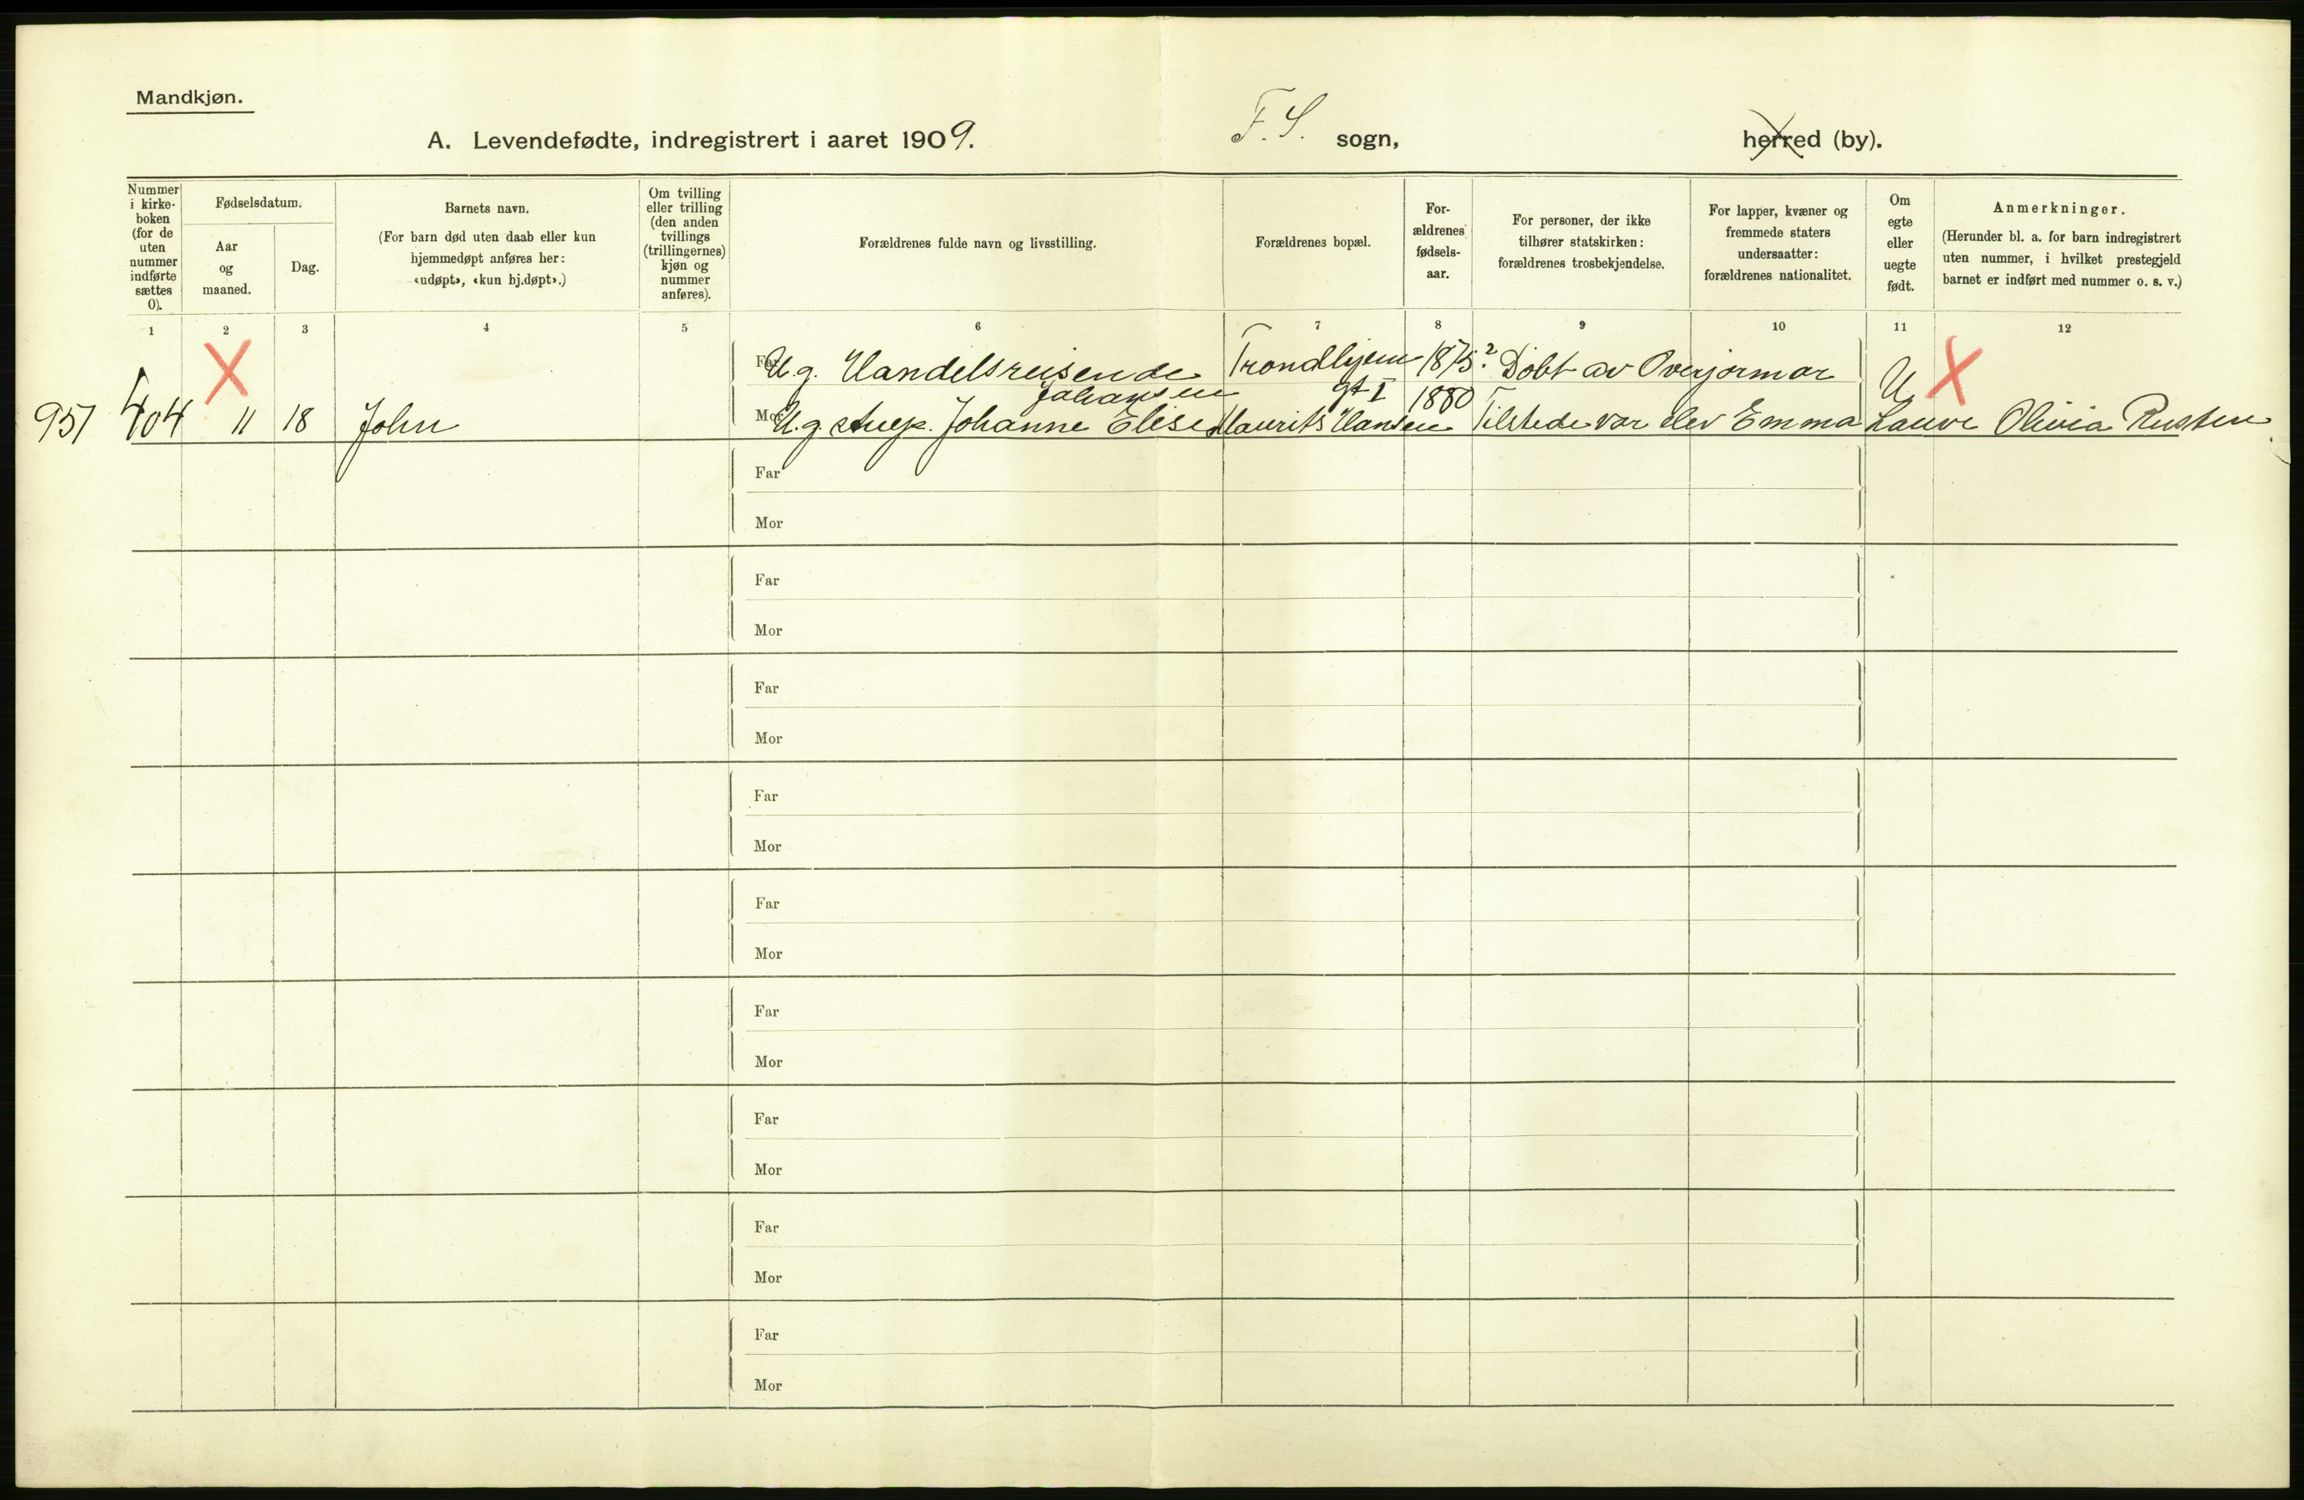 Mandkjøn.
A. Levendefødte, indregistrert i aaret 1909. F. S. sogn, herred (by).
Nummer i kirke-boken (for de uten nummer indførte sættes 0).
Fødselsdatum.
Aar og maaned.
Dag.
Barnets navn.
(For barn død uten daab eller kun hjemmedøpt anføres her: «udøpt», «kun hj.døpt».)
Om tvilling eller trilling (den anden tvillings (trillingernes) kjøn og nummer anføres).
Forældrenes fulde navn og livsstilling.
Forældrenes bopæl.
For-ældrenes fødsels-aar.
For personer, der ikke tilhører statskirken: forældrenes trosbekjendelse.
For lapper, kvæner og fremmede staters undersaatter: forældrenes nationalitet.
Om egte eller uegte født.
Anmerkninger.
(Herunder bl. a. for barn indregistrert uten nummer, i hvilket prestegjeld barnet er indført med nummer o. s. v.)
1 2 3 4 5 6 7 8 9 10 11 12
Far U.g. Handelsreisende Trondhjem 1875? Døbt av Overjormor
Johansen gt I 1880 U.
951 404 11 18 John Mor U.g. Johanne Elise Laurits Hansen Tilstede var elev Emma Laure Olivia Rusten
Far
Mor
Far
Mor
Far
Mor
Far
Mor
Far
Mor
Far
Mor
Far
Mor
Far
Mor
Far
Mor